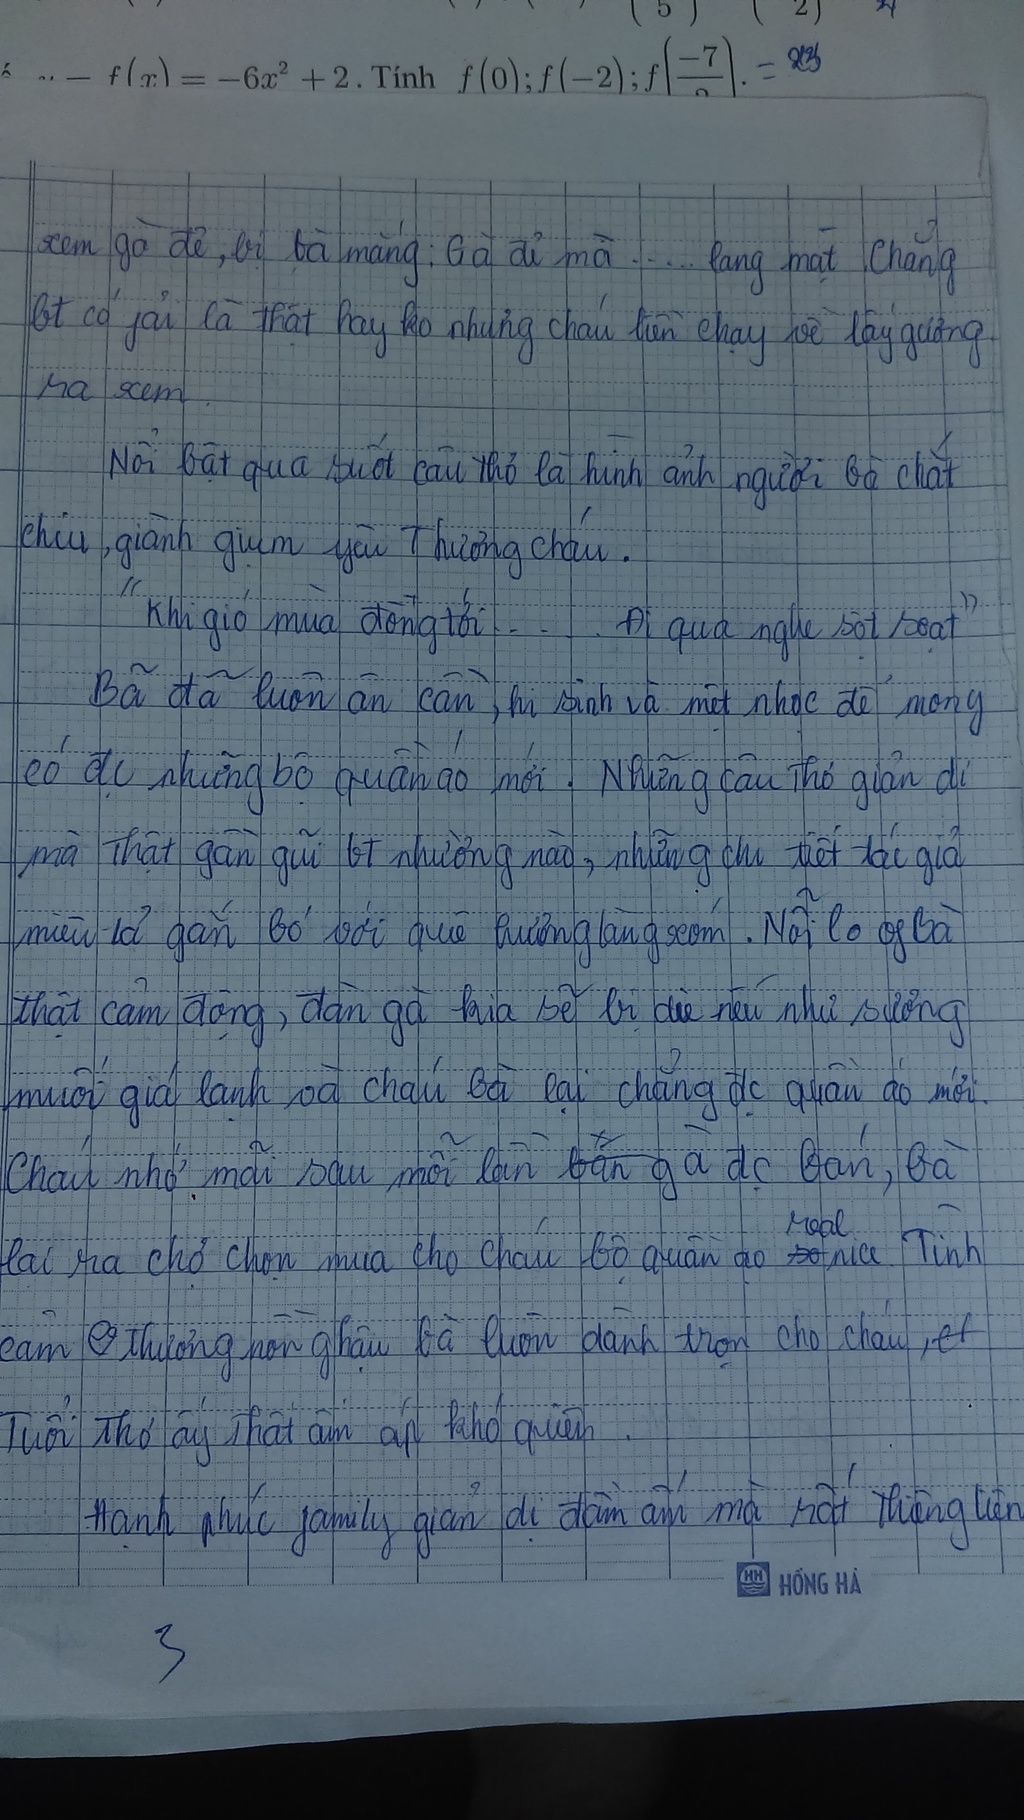 f(x) = −6x² + 2. Tính f(0); f(−2); f(−7
xem gà đẻ, bị bà mắng: Gà đẻ mà ..... lang mặt. Chẳng
bt có fải là thật hay ko nhưng cháu liền chạy về lấy gương
ra xem.
Nổi bật qua suốt câu thơ là hình ảnh người bà chắt
chiu, giành giụm yêu thương cháu.
"Khi gió mùa đông tới ..... Đi qua nghe sột soạt"
Bà đã luôn ân cần, hi sinh và mệt nhọc để mong
có đc những bộ quần áo mới. Những câu thơ giản dị
mà thật gần gũi bt nhường nào, những chi tiết tác giả
miêu tả gắn bó với quê hương làng xóm. Nỗi lo of bà
thật cảm động, đàn gà kia sẽ bị die nếu như sương
muối giá lạnh và cháu bà lại chẳng đc quần áo mới.
Cháu nhớ mãi sau mỗi lần bán gà đc bán, bà
lại ra chợ chọn mua cho cháu bộ quần áo real nice Tình
cảm thương nồng hậu bà luôn dành trọn cho cháu,
Tuổi thơ ấy thật ấm áp khó quên.
Hạnh phúc family giản dị đầm ấm mà rất thiêng liên
HỒNG HÀ
3